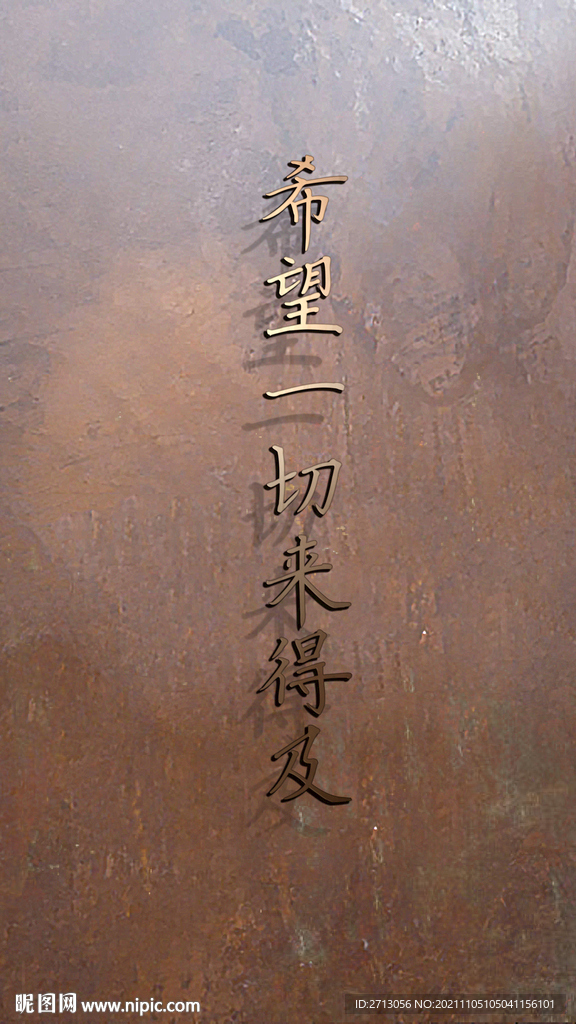 希望一切来得及
昵图网 www.nipic.com
ID:2713056 NO:20211105105041156101